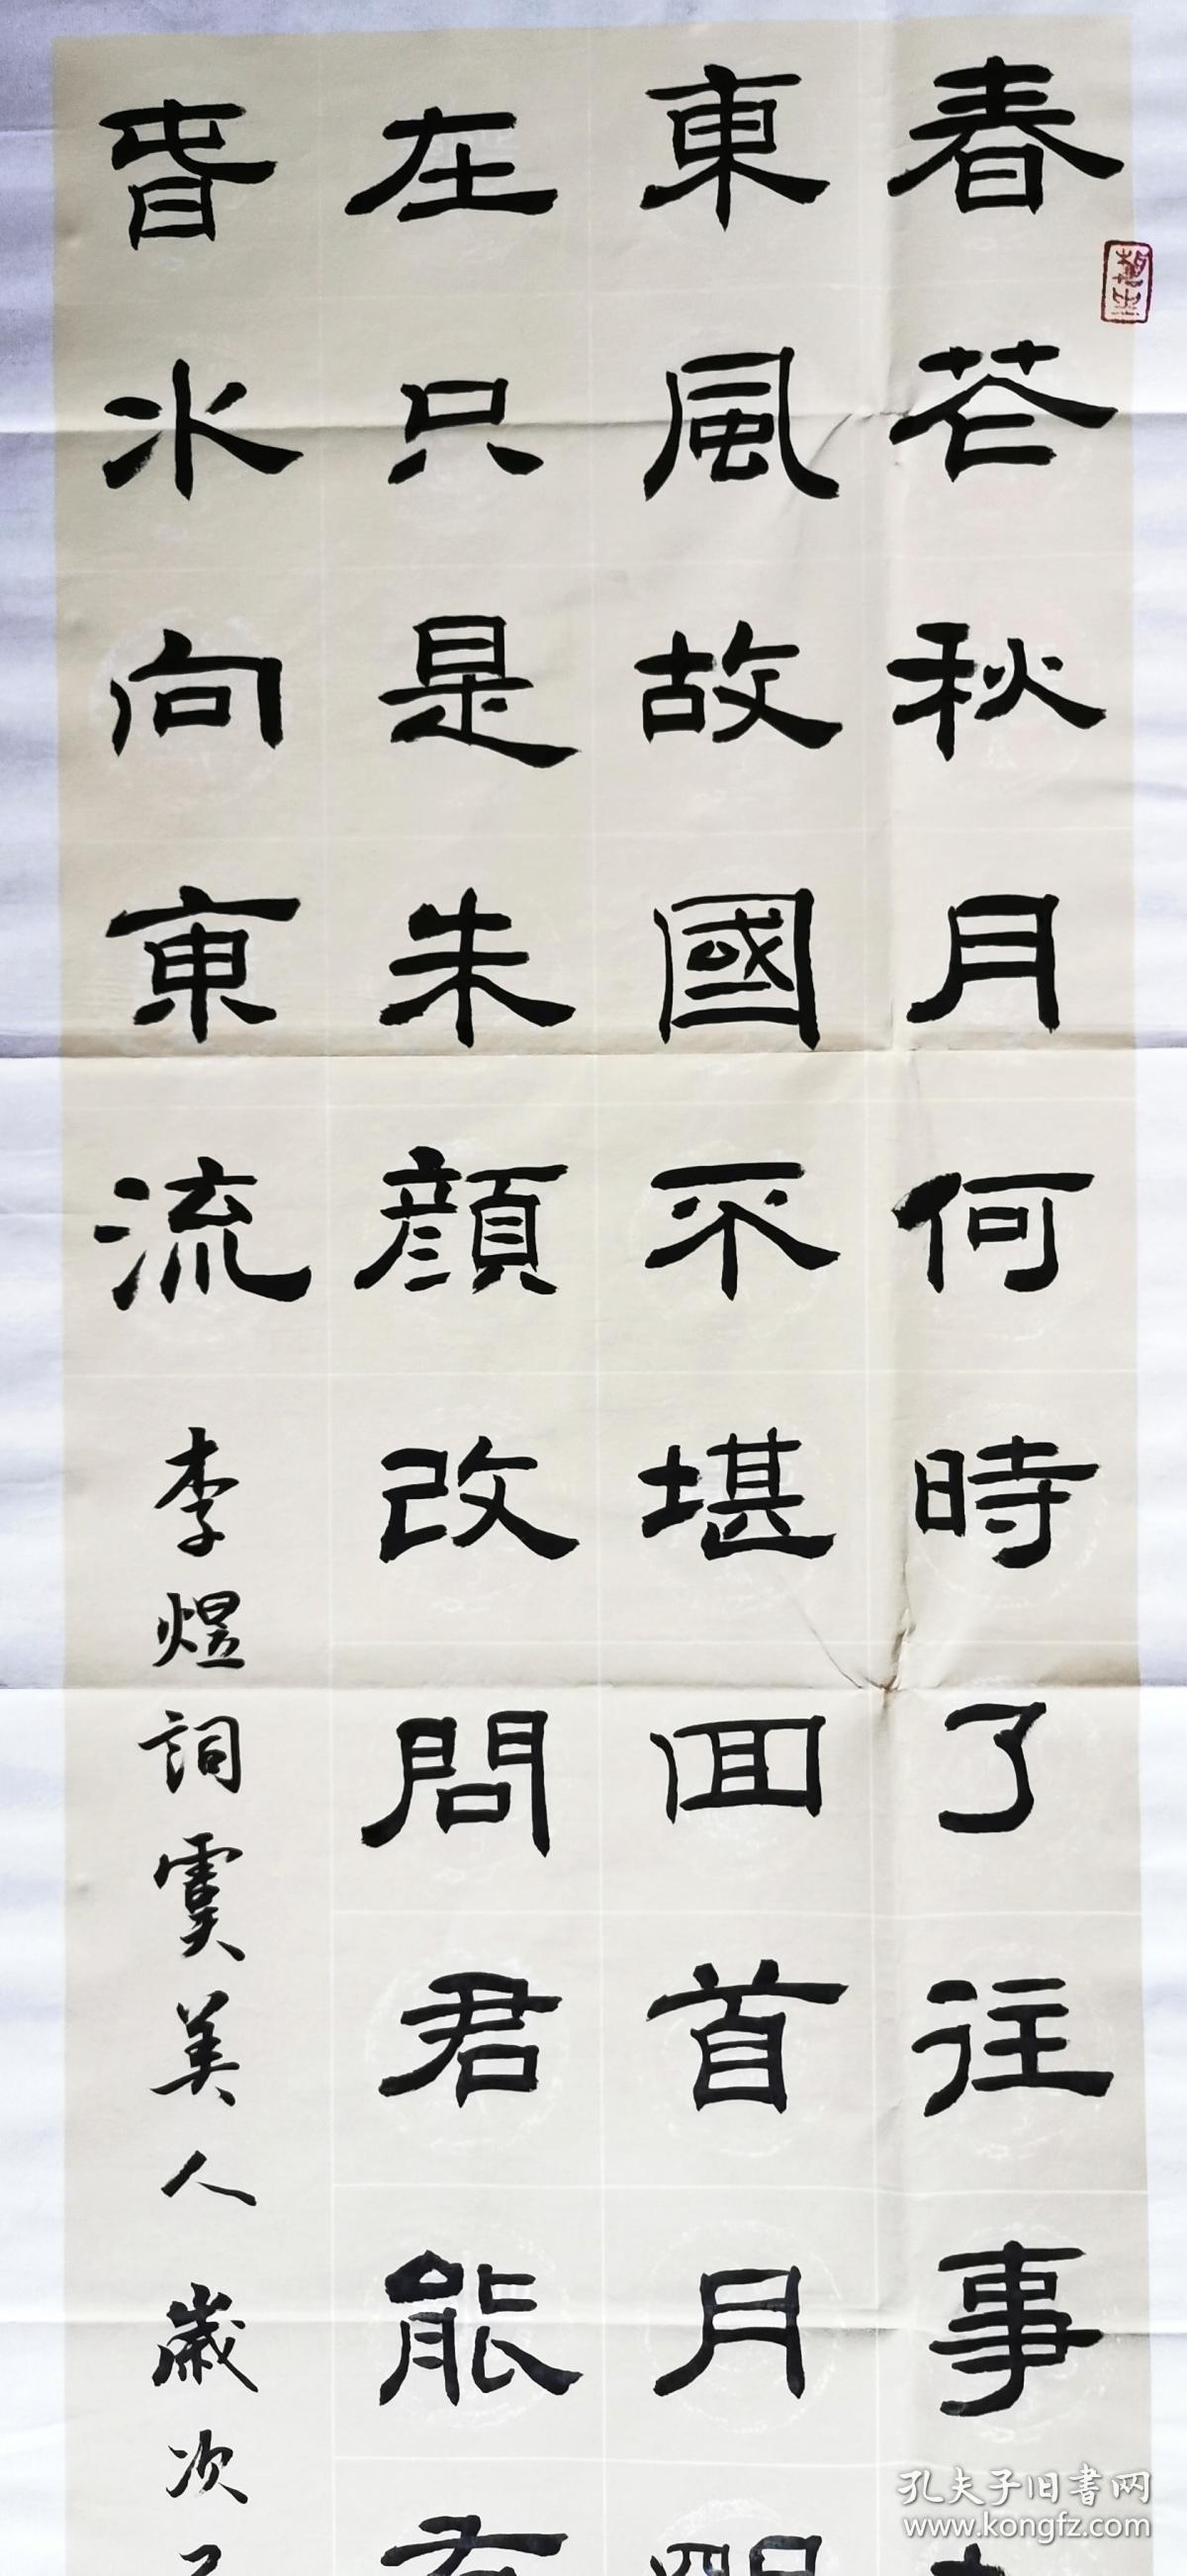 春花秋月何時了往事
東風故國不堪回首月
在只是朱顔改問君能
春水向東流 李煜詞虞美人歲次
孔夫子旧書网
www.kongfz.com